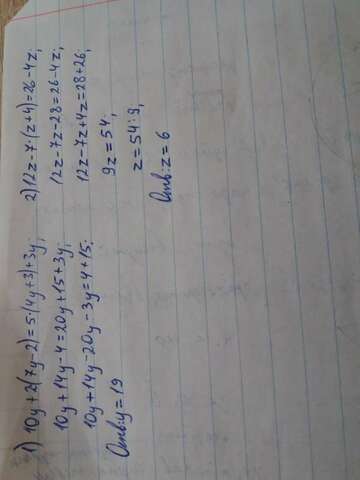 1) 10y + 2(7y-2) = 5·(4y+3)+3y;
10y + 14y - 4 = 20y + 15 + 3y;
10y + 14y - 20y - 3y = 4 + 15;
Отв: y = 19
2) 12z - 7·(z+4) = 26 - 4z;
12z - 7z - 28 = 26 - 4z;
12z - 7z + 4z = 28 + 26;
9z = 54;
z = 54 : 9;
Отв: z = 6